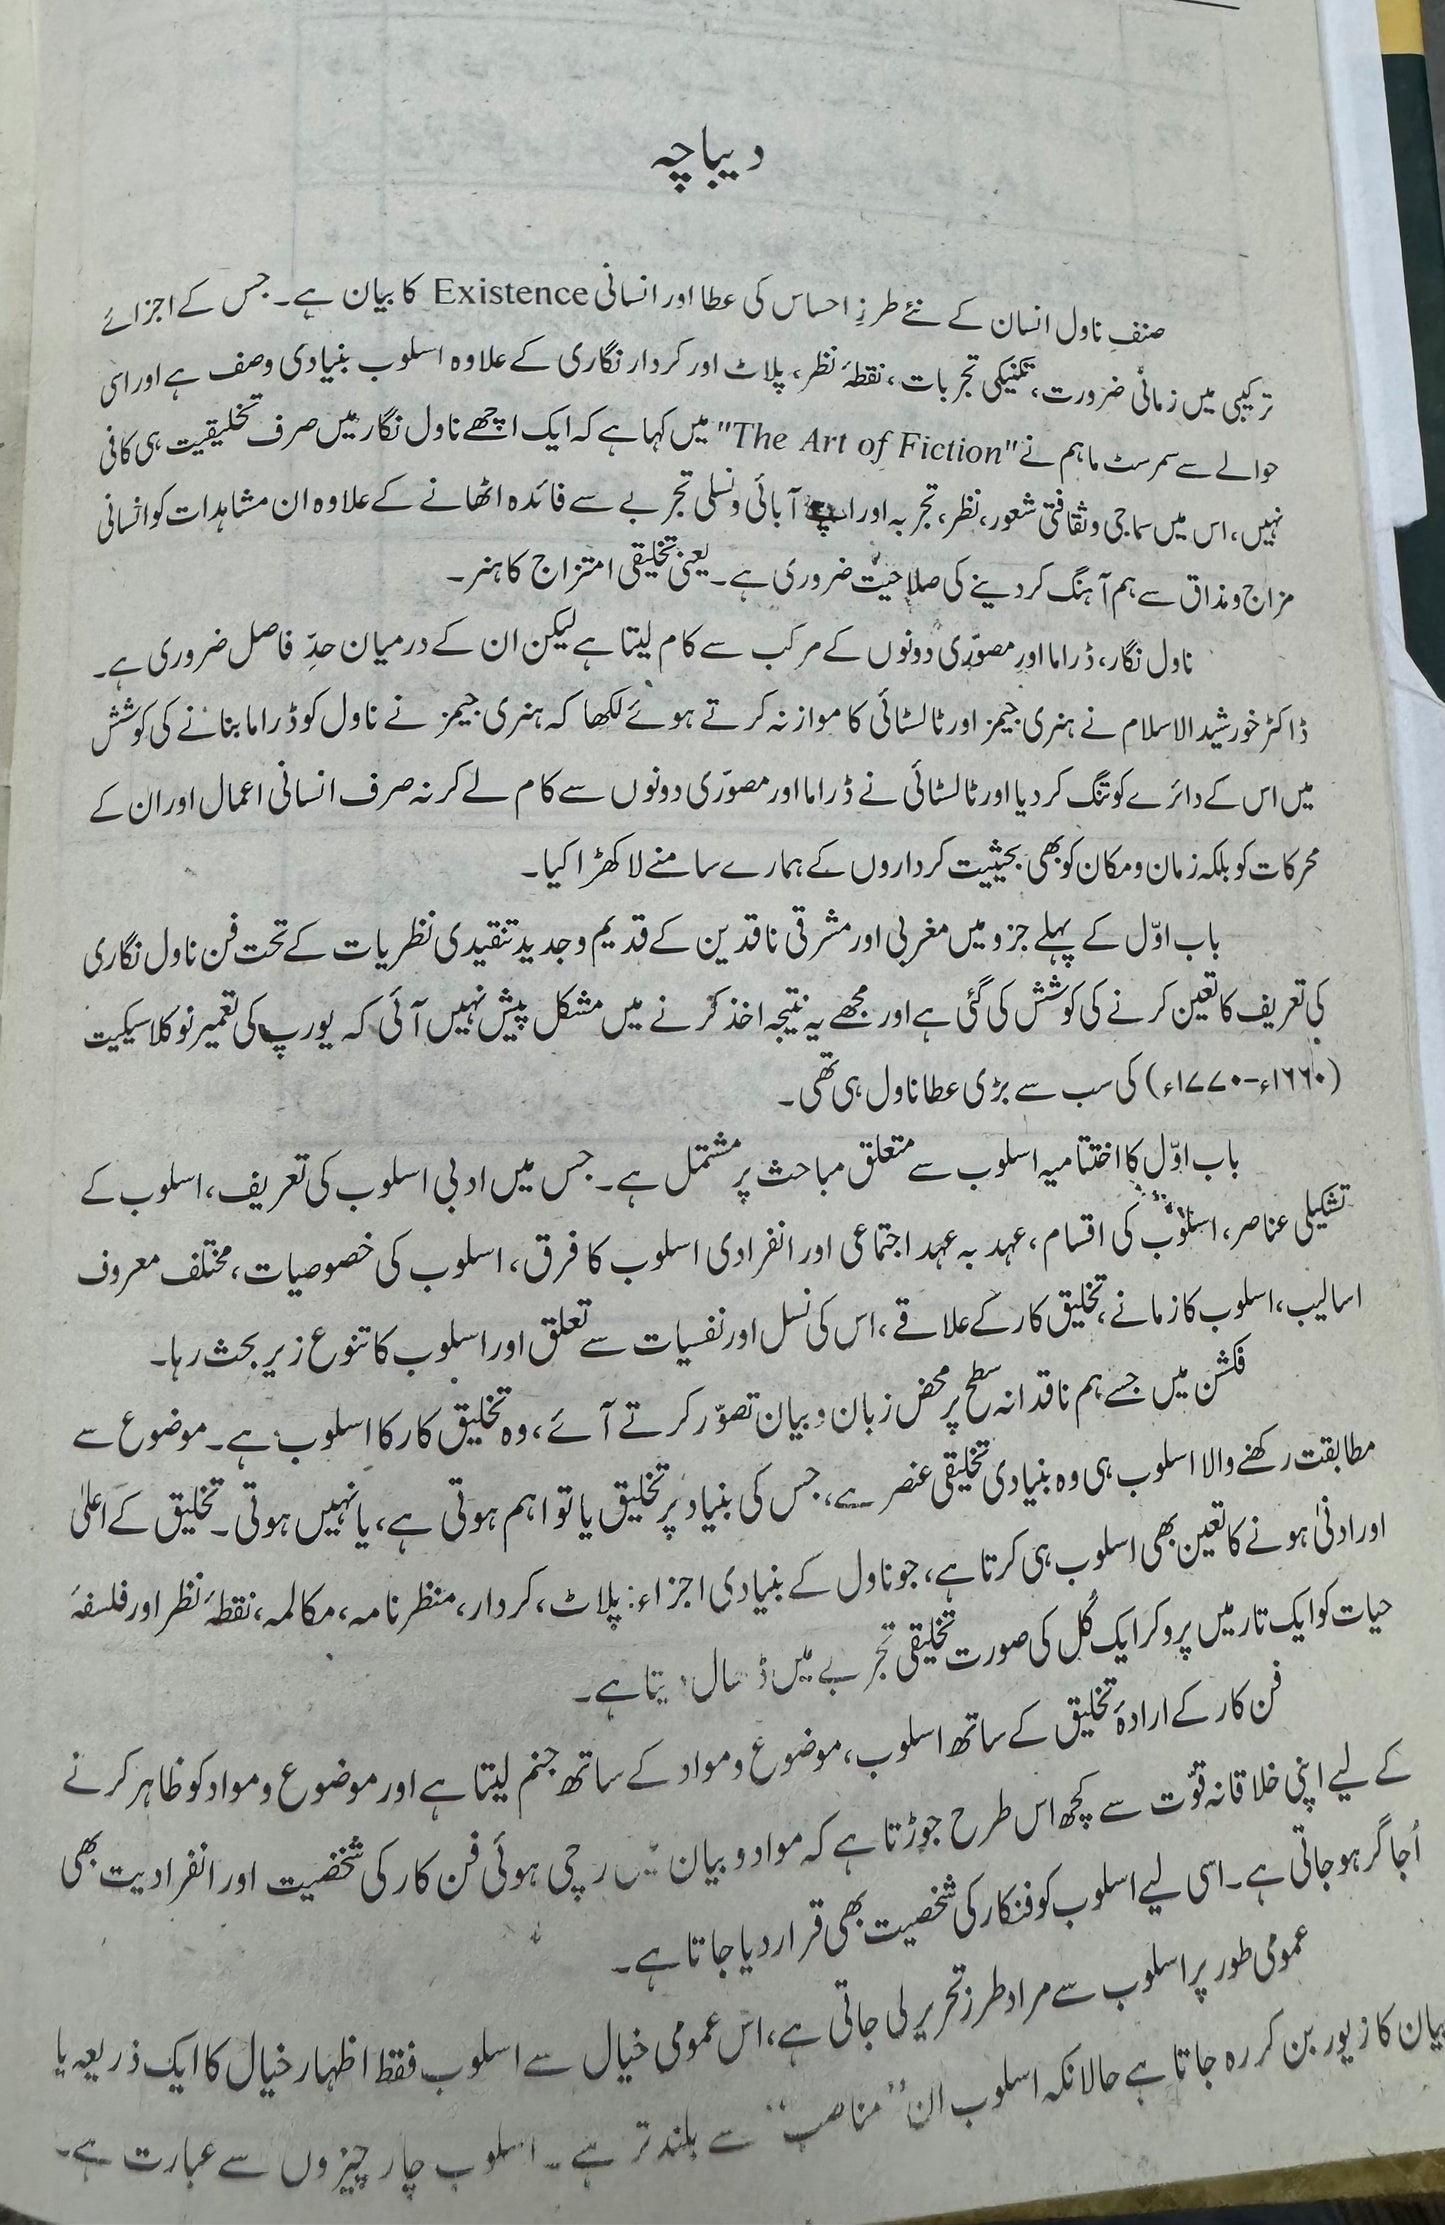 دیباچہ
صنفِ ناول انسان کے نئے طرزِ احساس کی عطا اور انسانی Existence کا بیان ہے۔ جس کے اجزائے
ترکیبی میں زمانی ضرورت، تکنیکی تجربات، نقطۂ نظر، پلاٹ اور کردار نگاری کے علاوہ اسلوب بنیادی وصف ہے اور اسی
حوالے سے سمرسٹ ماہم نے "The Art of Fiction" میں کہا ہے کہ ایک اچھے ناول نگار میں صرف تخلیقیت ہی کافی
نہیں، اس میں سماجی وثقافتی شعور، نظر، تجربہ اور اپنے آبائی و نسلی تجربے سے فائدہ اٹھانے کے علاوہ ان مشاہدات کو انسانی
مزاج ومذاق سے ہم آہنگ کر دینے کی صلاحیت ضروری ہے۔ یعنی تخلیقی امتزاج کا ہنر۔
ناول نگار، ڈراما اور مصوّری دونوں کے مرکب سے کام لیتا ہے لیکن ان کے درمیان حدِّ فاصل ضروری ہے۔
ڈاکٹر خورشید الاسلام نے ہنری جیمز اور ٹالسٹائی کا موازنہ کرتے ہوئے لکھا کہ ہنری جیمز نے ناول کو ڈراما بنانے کی کوشش
میں اس کے دائرے کو تنگ کر دیا اور ٹالسٹائی نے ڈراما اور مصوّری دونوں سے کام لے کر نہ صرف انسانی اعمال اور ان کے
محرکات کو بلکہ زمان و مکان کو بھی بحیثیت کرداروں کے ہمارے سامنے لا کھڑا کیا۔
باب اوّل کے پہلے جزو میں مغربی اور مشرقی ناقدین کے قدیم و جدید تنقیدی نظریات کے تحت فن ناول نگاری
کی تعریف کا تعین کرنے کی کوشش کی گئی ہے اور مجھے یہ نتیجہ اخذ کرنے میں مشکل پیش نہیں آئی کہ یورپ کی تعمیر نو کلاسیکیت
(۱۶۶۰ء-۱۷۷۰ء) کی سب سے بڑی عطا ناول ہی تھی۔
باب اوّل کا اختتامیہ اسلوب سے متعلق مباحث پر مشتمل ہے۔ جس میں ادبی اسلوب کی تعریف، اسلوب کے
تشکیلی عناصر، اسلوب کی اقسام، عہد بہ عہد اجتماعی اور انفرادی اسلوب کا فرق، اسلوب کی خصوصیات، مختلف معروف
اسالیب، اسلوب کا زمانے، تخلیق کار کے علاقے، اس کی نسل اور نفسیات سے تعلق اور اسلوب کا تنوع زیر بحث رہا۔
فکشن میں جسے ہم ناقدانہ سطح پر محض زبان و بیان تصوّر کرتے آئے، وہ تخلیق کار کا اسلوب ہے۔ موضوع سے
مطابقت رکھنے والا اسلوب ہی وہ بنیادی تخلیقی عنصر ہے، جس کی بنیاد پر تخلیق یا تو اہم ہوتی ہے، یا نہیں ہوتی۔ تخلیق کے اعلیٰ
اور ادنیٰ ہونے کا تعین بھی اسلوب ہی کرتا ہے، جو ناول کے بنیادی اجزاء: پلاٹ، کردار، منظر نامہ، مکالمہ، نقطۂ نظر اور فلسفۂ
حیات کو ایک تار میں پرو کر ایک کُل کی صورت تخلیقی تجربے میں ڈھال دیتا ہے۔
فن کار کے ارادۂ تخلیق کے ساتھ اسلوب، موضوع و مواد کے ساتھ جنم لیتا ہے اور موضوع و مواد کو ظاہر کرنے
کے لیے اپنی خلاقانہ قوّت سے کچھ اس طرح جوڑتا ہے کہ مواد و بیان میں رچی ہوئی فن کار کی شخصیت اور انفرادیت بھی
اُجاگر ہو جاتی ہے۔ اسی لیے اسلوب کو فنکار کی شخصیت بھی قرار دیا جاتا ہے۔
عمومی طور پر اسلوب سے مراد طرز تحریر لی جاتی ہے، اس عمومی خیال سے اسلوب فقط اظہار خیال کا ایک ذریعہ یا
بیان کا زیور بن کر رہ جاتا ہے حالانکہ اسلوب ان "مناصب" سے بلند تر ہے۔ اسلوب چار چیزوں سے عبارت ہے۔